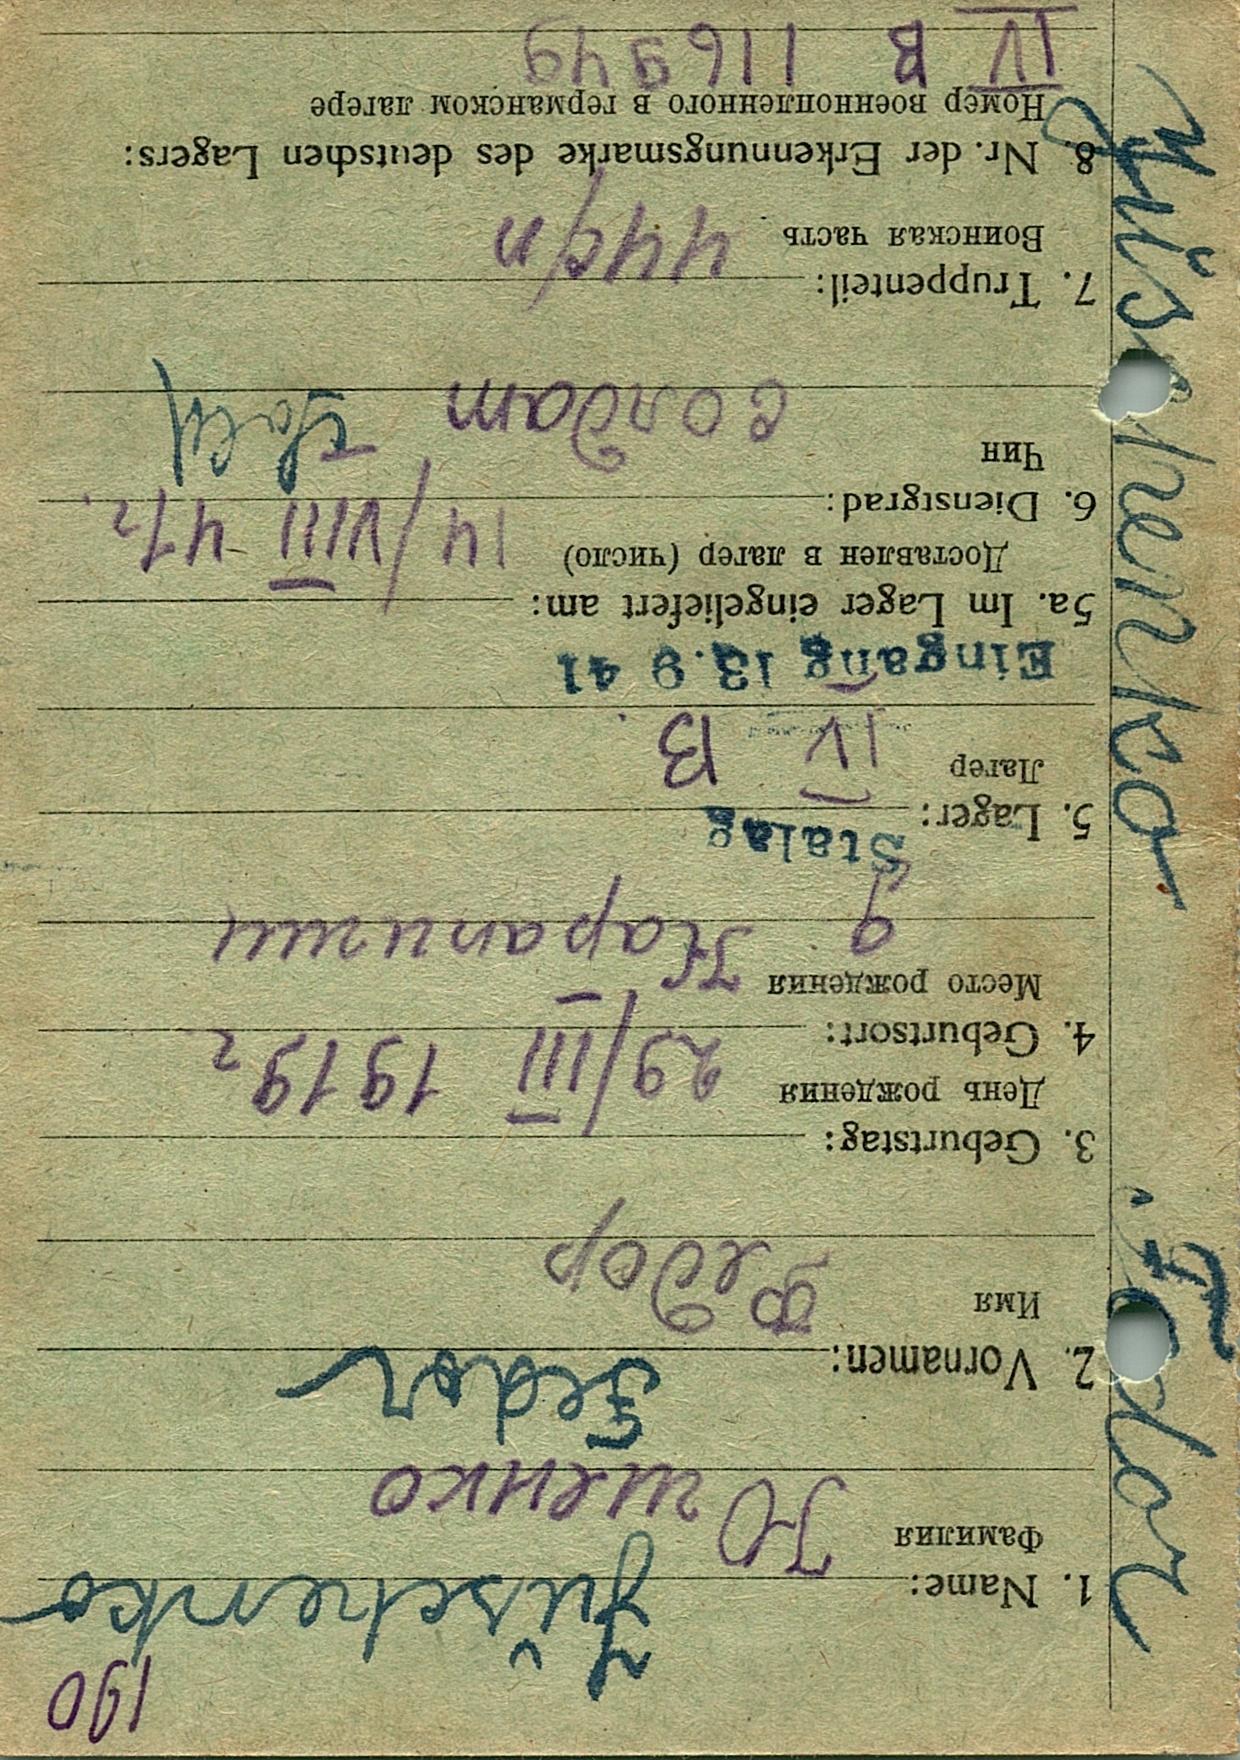 190
Jüschenko
1. Name:
Фамилия Ющенко
Fedor
2. Vornamen:
Имя Федор
3. Geburtstag:
День рождения 29/III 1919 г
4. Geburtsort:
Место рождения д. Харапизии
Stalag
5. Lager: IV B.
Лагер
Eingang 13. 9 41
5a. Im Lager eingeliefert am:
Доставлен в лагер (число) 14/VIII 41 г.
6. Dienstgrad:
Чин солдат
7. Truppenteil:
Воинская часть 44 с/п
8. Nr. der Erkennungsmarke des deutschen Lagers:
Номер военнопленного в германском лагере
IV B 116949
Jüschenko, Fedor